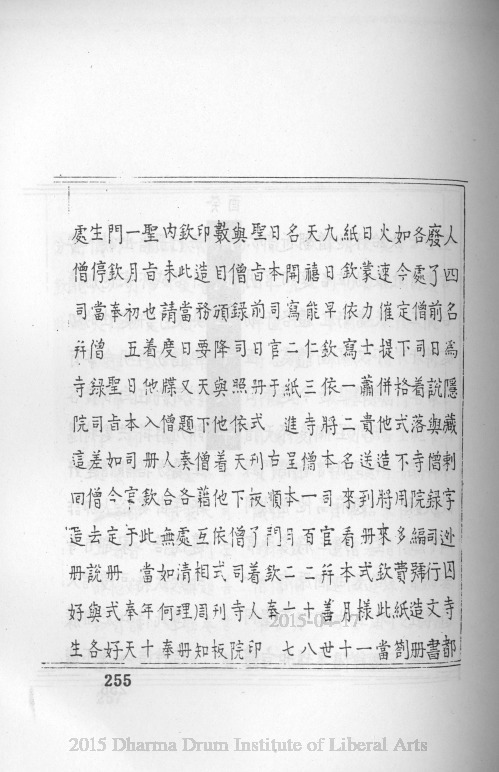 人四名為隱藏剌字迯囚寺都
廢了前日說與僧錄司行文書
各處僧司着落寺院編號造册
如今定下格式不用多費紙劄
火速催提併他造將來欽此當
日蒙力士蕭貴送到册式樣一
紙欽依寫一二名來看本月十
九日早欽依將本司官幷善世
天禧能仁三寺僧一百二十八
名開寫二紙進呈本月二十七
日本司官于 右順門欽奉
聖旨前日册式刊板了着人印
與僧錄司照依天下僧司寺院
數目頒降與他着他依式刊板
印造務要天下僧藉互相周知
欽此當日又題奏各處清理册
內未請度牒僧人合無如何奉
聖旨也着他入册欽此當年十
一月初五日本司官于 奉天
門欽奉 聖旨如今定册式好
生停當僧錄司差僧去說與各
處僧司幷寺院這回造册好生
255
2015 Dharma Drum Institute of Liberal Arts